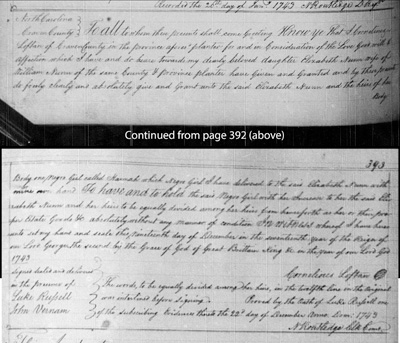 Record is the 20th day of Jany 1743 N Routledge D Rgr
North Carolina
Craven County
To all to whom these presents shall come Greeting Know ye that I Cornelius
Loftan of Craven County in the province afores planter for and in Consideration of the Love Good will &
affection which I have and do bear towards my dearly beloved daughter Elizabeth Nunn wife of
William Nunn of the same County & province planter have Given and Granted and by these presents
do freely clearly and absolutely give and Grant unto the said Elizabeth Nunn and the heirs of her
Body
Continued from page 392 (above)
393
Body one Negro Girl called Hannah which Negro Girl I have delivered to the said Elizabeth Nunn with
my own hand To have and to hold the said Negro Girl with her Increase to her the said Eliz
abeth Nunn and her heirs to be equally divided among her heirs from henceforth as her or their prop
per Estate Goods & absolutely without any manner of condition In Witness whereof I have here
unto set my hand and seals this nineteenth day of December in the seventeenth year of the Reign of
our Lord George the second by the Grace of God of Great Brittain King & in the year of our Lord God
1743
Cornelious Loftan
Signed Sealed and delivered
in the presence of
Luke Russell
John Vernam
The words, to be equally divided among her heirs, in the twelfth line in the Original
was interlined before signing
Proved by the Oath of Luke Russell one
of the subscribing Evidences thereto the 22d day of December Anno Dom: 1743
N Routledge Clk Cour